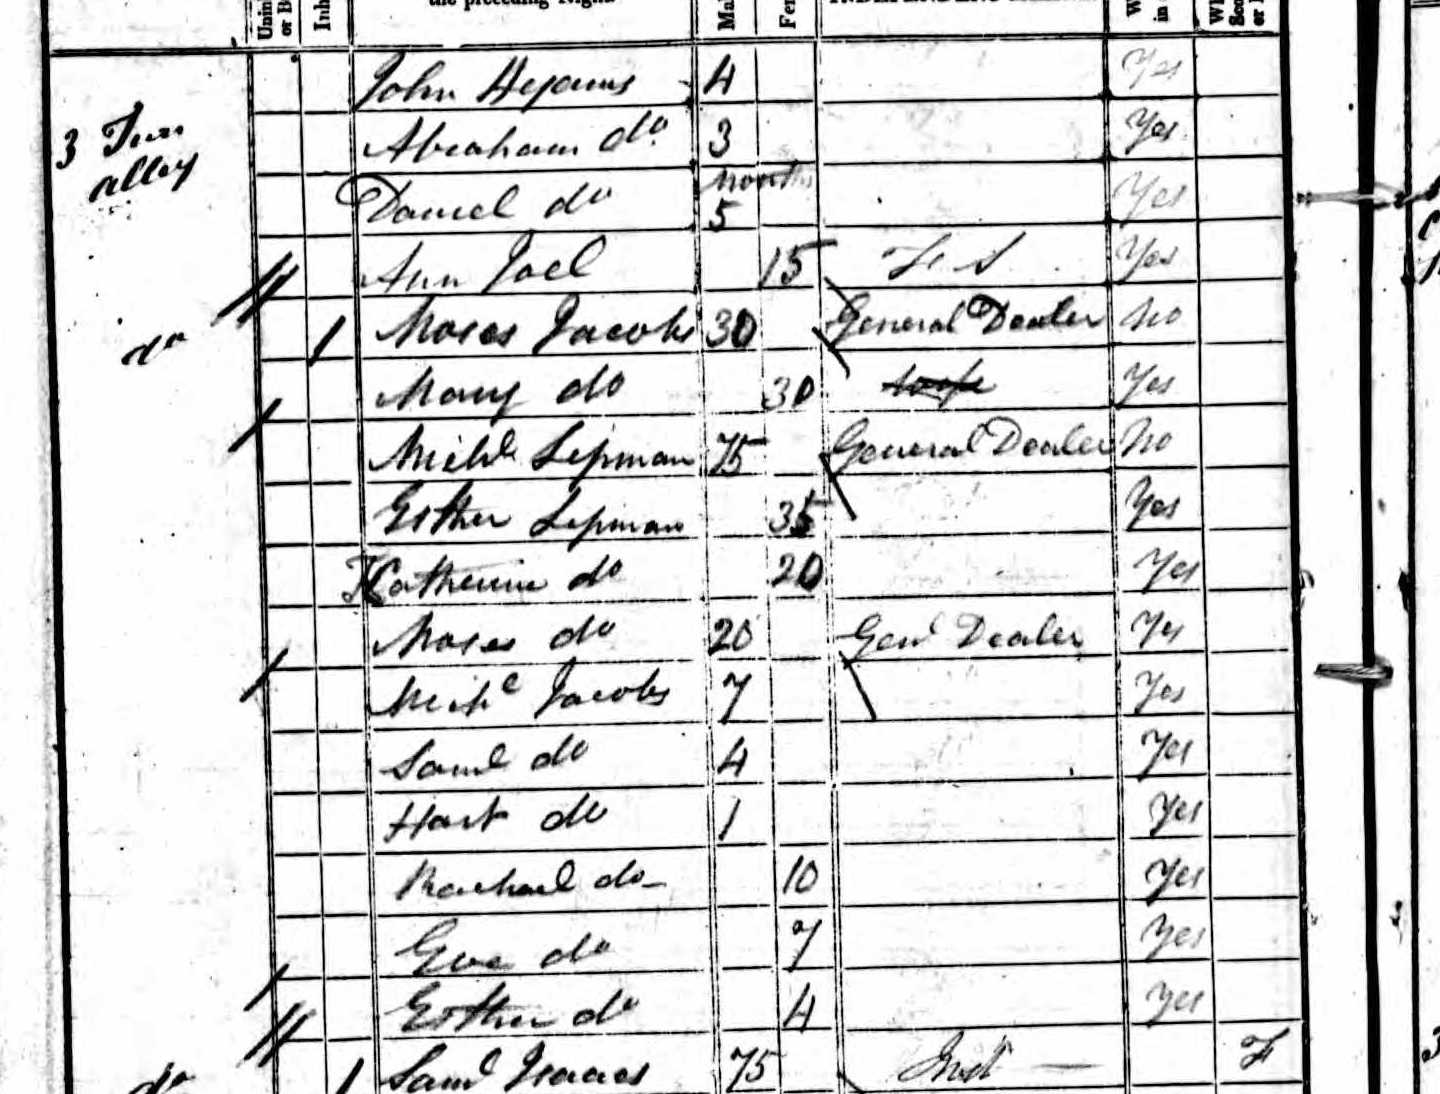 the preceding Night.
John Hyams 4 Yes
3 Tun alley
Abraham do 3 Yes
Daniel do months 5 Yes
Ann Joel 15 F. S. Yes
do 1 Moses Jacobs 30 General Dealer No
Mary do 30 wife Yes
Michl Lipman 75 General Dealer No
Esther Lipman 35 Yes
Catherine do 20 Yes
Moses do 20 Genl Dealer Yes
Michl Jacobs 7 Yes
Saml do 4 Yes
Hart do 1 Yes
Rachael do 10 Yes
Eve do 7 Yes
Esther do 4 Yes
do 1 Saml Isaacs 75 F